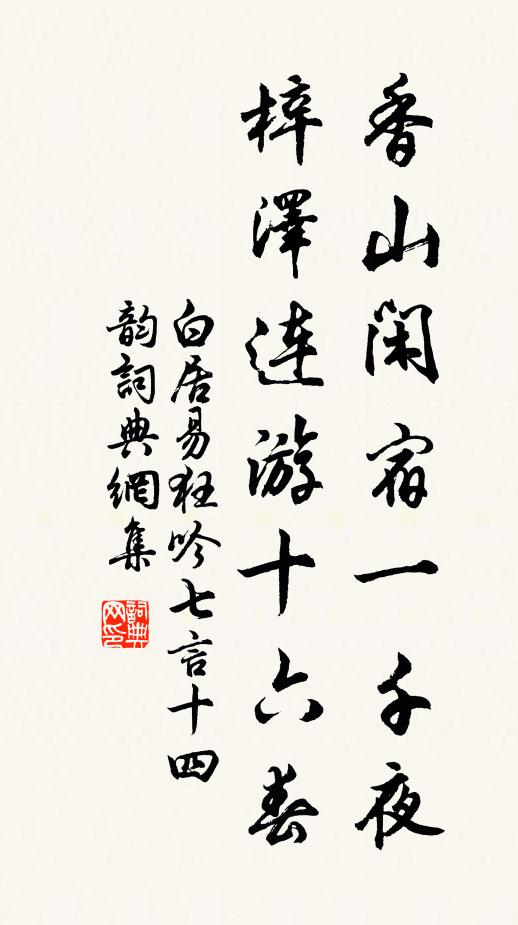 香山閑宿一千夜
梓澤連游十六春
白居易狂吟七言十四
韵詞典網集
詞典网印